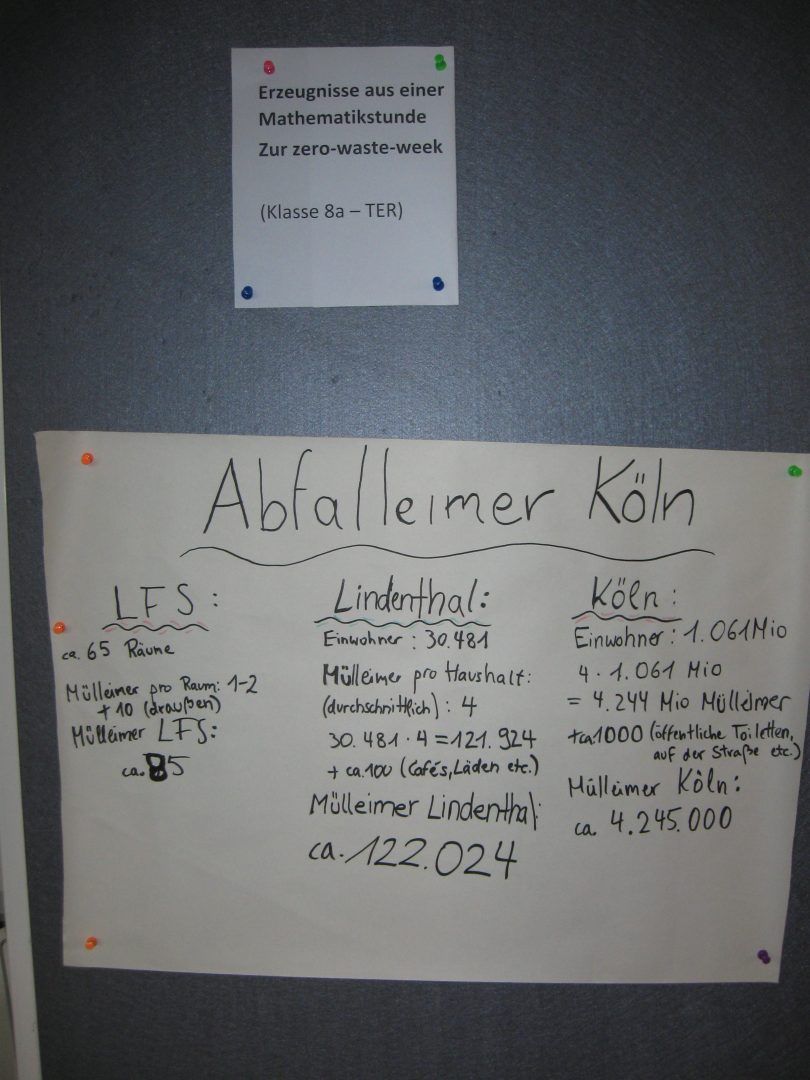 Erzeugnisse aus einer
Mathematikstunde
Zur zero-waste-week
(Klasse 8a – TER)
Abfalleimer Köln
LFS:
ca. 65 Räume
Mülleimer pro Raum: 1-2
+ 10 (draußen)
Mülleimer LFS:
ca. 85
Lindenthal:
Einwohner: 30.481
Mülleimer pro Haushalt:
(durchschnittlich): 4
30.481 · 4 = 121.924
+ ca. 100 (Cafés, Läden etc.)
Mülleimer Lindenthal:
ca. 122.024
Köln:
Einwohner: 1.061 Mio
4 · 1.061 Mio
= 4.244 Mio Mülleimer
+ ca. 1000 (öffentliche Toiletten,
auf der Straße etc.)
Mülleimer Köln:
ca. 4.245.000